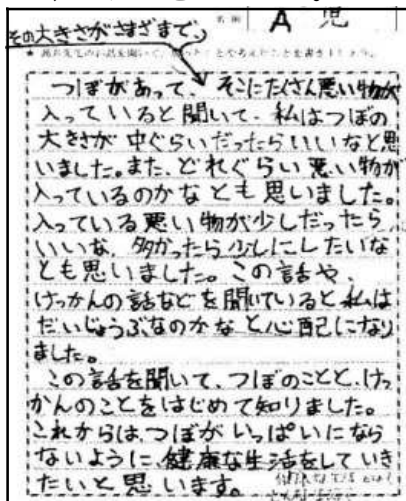 その大きさがさまざまで、
名前 A 児
つぼがあって、そこにたくさん悪い物が
入っていると聞いて、私はつぼの
大きさが中ぐらいだったらいいなと思
いました。また、どれぐらい悪い物が
入っているのかなとも思いました。
入っている悪い物が少しだったら
いいな、多かったら少しにしたいな
とも思いました。この話や、
けっかんの話などを聞いていると私は
だいじょうぶなのかなと心配になり
ました。
この話を聞いて、つぼのことと、けっ
かんのことをはじめて知りました。
これからは、つぼがいっぱいになら
ないように、健康な生活をしていき
たいと思います。